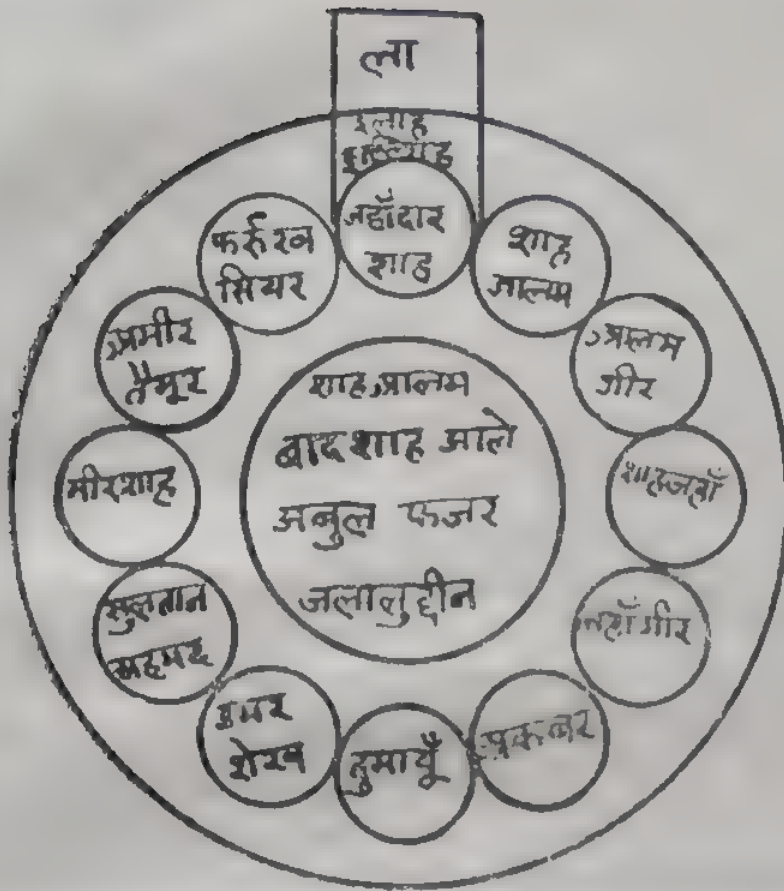 ला
इलाह
जहाँदार
शाह
शाह
आलम
आलम
गीर
शाहजहाँ
जहाँगीर
अकबर
हुमायूँ
उमर
शेख
सुलतान
अहमद
मीरशाह
अमीर
तैमूर
फर्रुख
सियर
शाह आलम
बादशाह आले
अबुल फजर
जलालुद्दीन